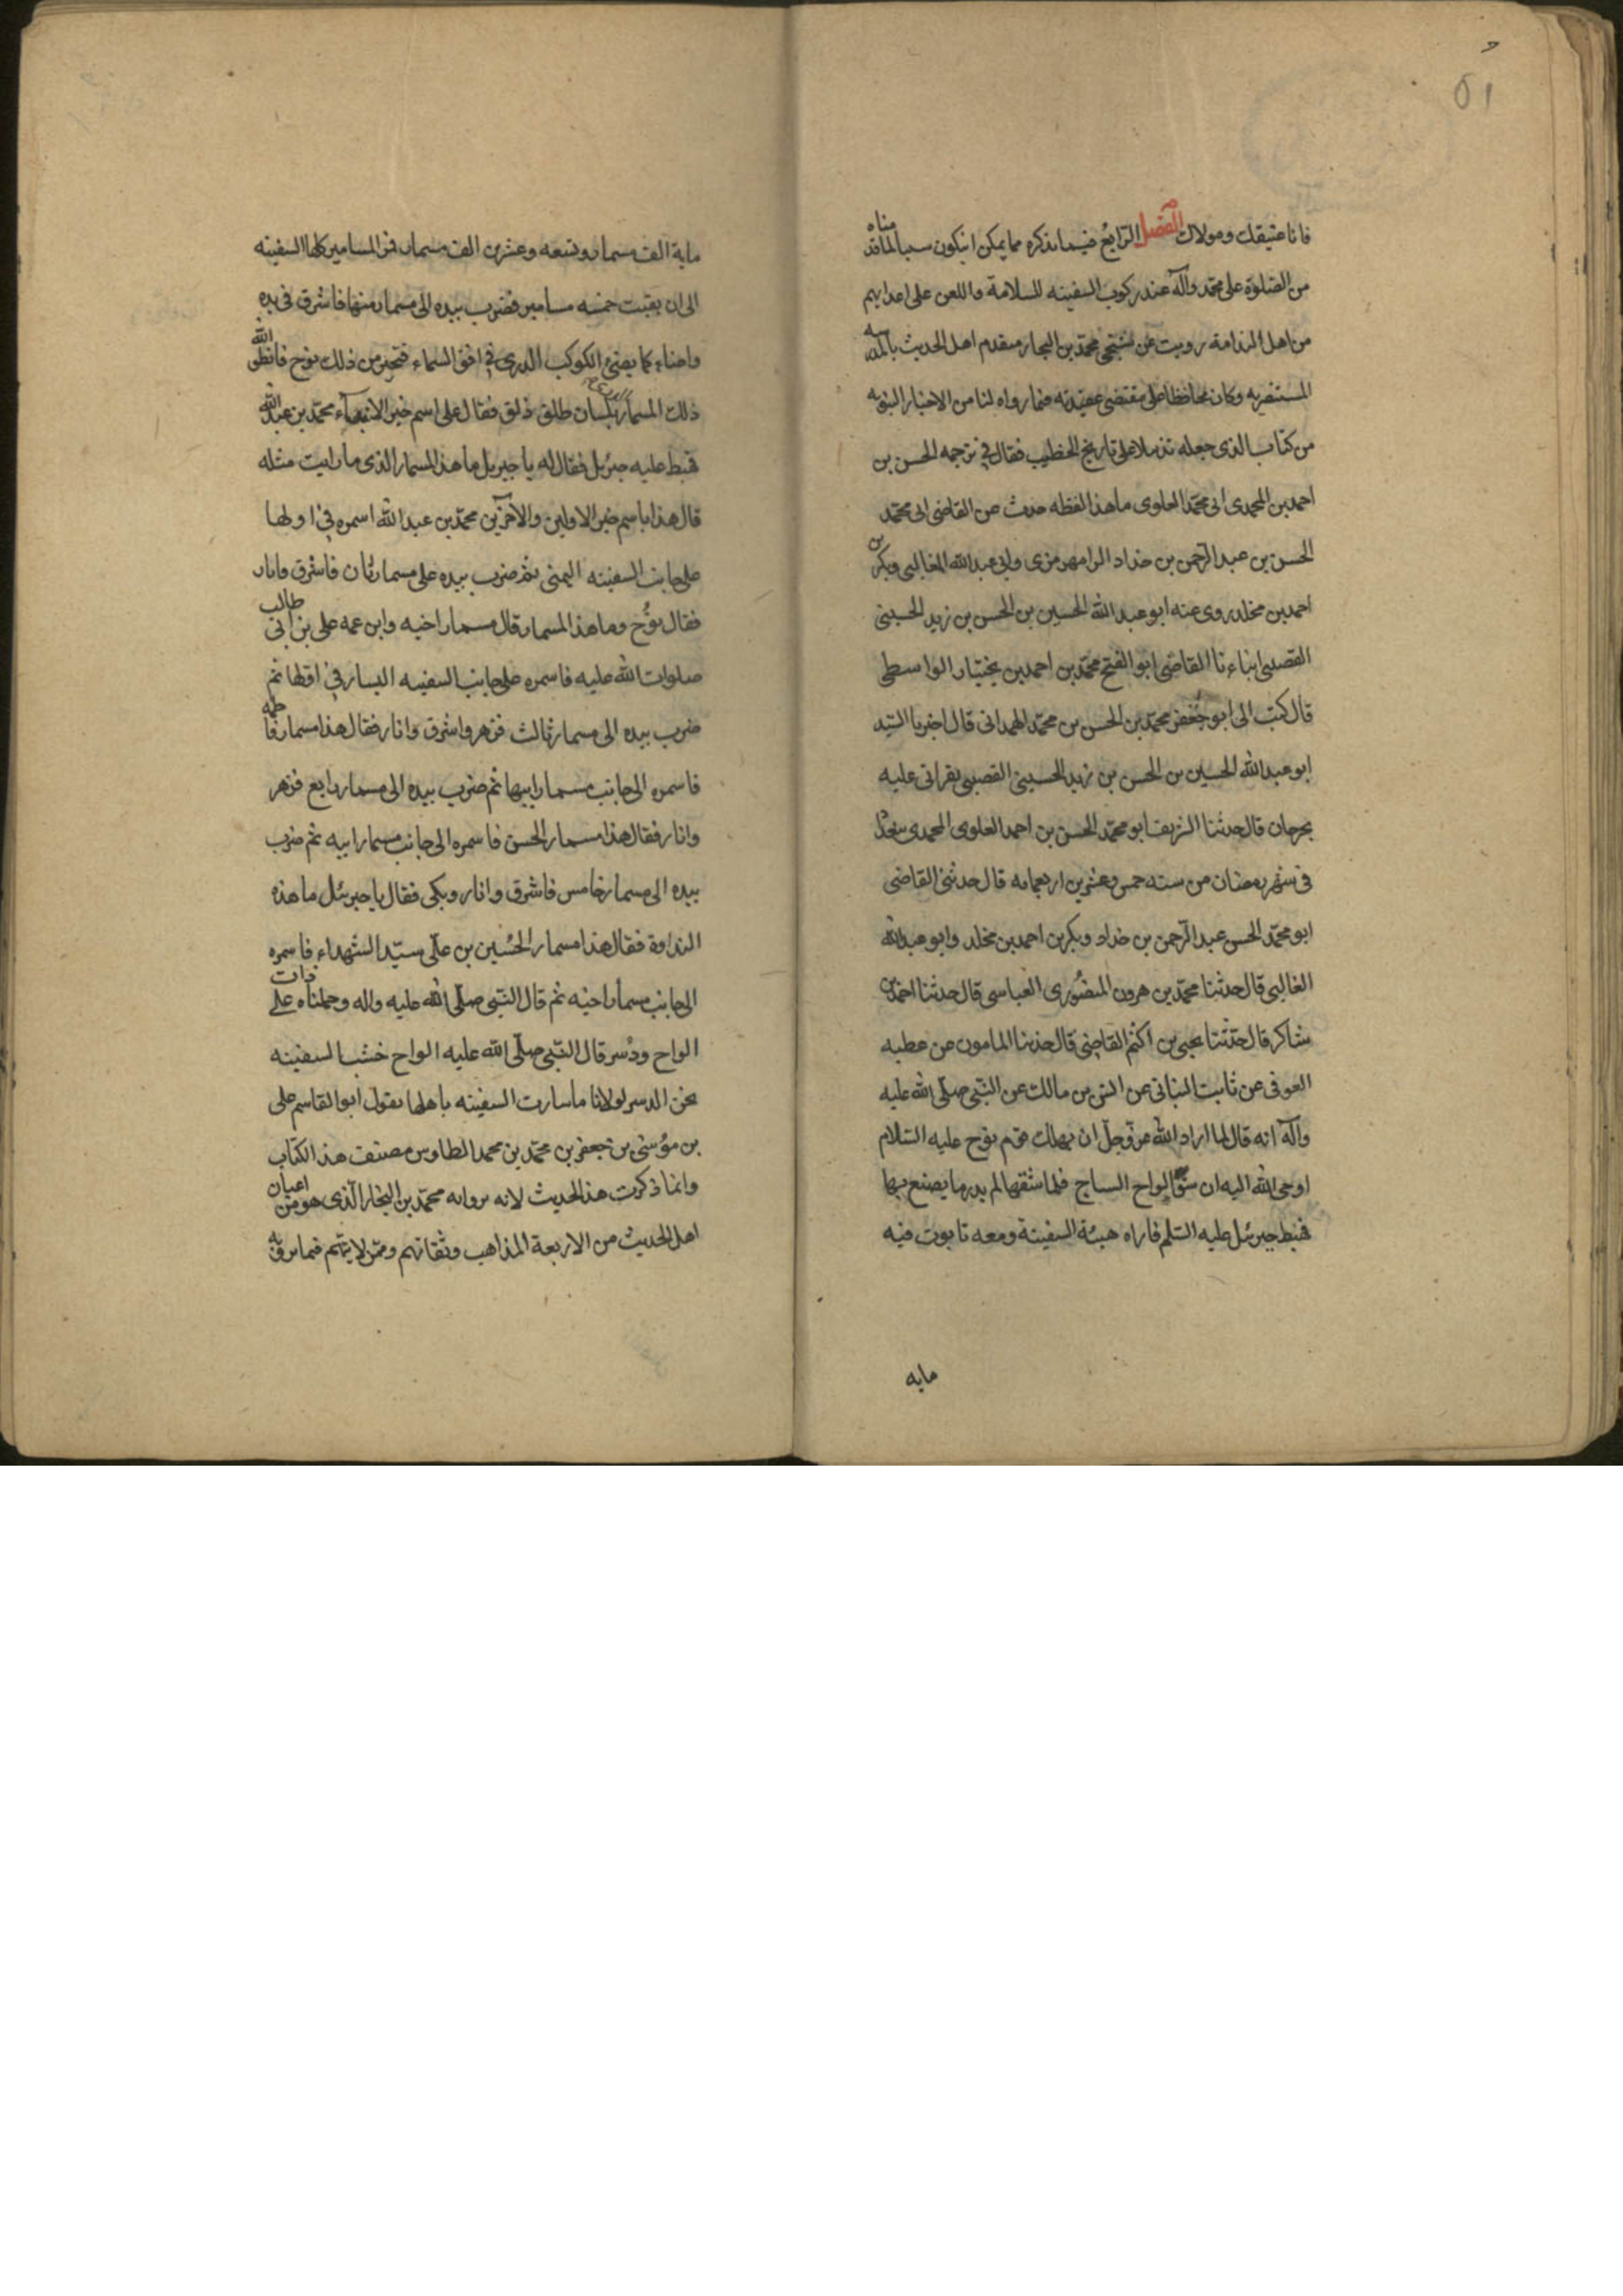 ٥١
فانا عتيقك ومولاك الفصل الرابع فيما نذكره مما يمكن ان يكون سببا لما قدمناه
من الصلوة على محمد وآله عند ركوب السفينه للسلامة واللعن على اعدايهم
من اهل الندامة رويت عن شيخى محمد بن النجار متقدم اهل الحديث بالمدرسه
المستنصريه وكان محافظا على مقتضى عقيدته فيما رواه لنا من الاخبار النبويه
من كتاب الذى جعله تذييلا على تاريخ الخطيب فقال فى ترجمه الحسن بن
احمد بن المحمدى ابى محمد العلوى ما هذا لفظه حدث عن القاضى ابى محمد
الحسن بن عبد الرحمن بن خداد الرامهرمزى وابى عبد الله الغالبى وبكر بن
احمد بن مخلد روى عنه ابو عبد الله الحسين بن الحسن بن زيد الحسينى
القصبى انباءنا القاضى ابو الفتح محمد بن احمد بن بختيار الواسطى
قال كتب الى ابو جعفر محمد بن الحسن بن محمد الهمدانى قال اخبرنا السيد
ابو عبد الله الحسين بن الحسن بن زيد الحسينى القصبى بقراتى عليه
بجرجان قال حدثنا الشريف ابو محمد الحسن بن احمد العلوى المحمدى ببغداد
فى شهر رمضان من سنه خمس وعشرين اربعمايه قال حدثنى القاضى
ابو محمد الحسن عبد الرحمن بن خداد وبكر بن احمد بن مخلد وابو عبد الله
الغالبى قال حدثنا محمد بن هرون المنصورى العباسى قال حدثنا احمد بن
شاكر قال حدثنا يحيى بن اكثم القاضى قال حدثنا المامون عن عطيه
العوفى عن ثابت البنانى عن انس بن مالك عن النبى صلى الله عليه
وآله انه قال لما اراد الله عز وجل ان يهلك قوم نوح عليه السلام
اوحى الله اليه ان شق الواح الساج فلما شقها لم يدر ما يصنع بها
فهبط جبرئيل عليه السلم فاراه هيئة السفينة ومعه تابوت فيه
مايه
ماية الف مسمار وتسعه وعشرين الف مسمار فى المسامير كلها السفينه
الى ان بقيت خمسه مسامير فضرب بيده الى مسمار منها فاشرق فى يده
واضاء كما يضئ الكوكب الدرى فى افق السماء فتحير من ذلك نوح فانطق الله
ذلك المسمار بلسان طلق ذلق فقال على اسم خير الانبياء محمد بن عبد الله
فهبط عليه جبرئيل فقال له يا جبريل ما هذا المسمار الذى ما رايت مثله
قال هذا باسم خير الاولين والآخرين محمد بن عبد الله اسمره فى اولها
على جانب السفينه اليمنى ثم ضرب بيده على مسمار ثان فاشرق وانار
فقال نوح وما هذا المسمار قال مسمار اخيه وابن عمه على بن ابى طالب
صلوات الله عليه فاسمره على جانب السفينه اليسار فى اولها ثم
ضرب بيده الى مسمار ثالث فزهر واشرق وانار فقال هذا مسمار فاطمه
فاسمره الى جانب مسمار ابيها ثم ضرب بيده الى مسمار رابع فزهر
وانار فقال هذا مسمار الحسن فاسمره الى جانب مسمار ابيه ثم ضرب
بيده الى مسمار خامس فاشرق وانار وبكى فقال يا جبرئيل ما هذه
النداوة فقال هذا مسمار الحسين بن على سيد الشهداء فاسمره
الى جانب مسمار اخيه ثم قال النبى صلى الله عليه واله وحملناه على ذات
الواح ودسر قال النبى صلى الله عليه الواح خشب السفينه
نحن الدسر لولانا ما سارت السفينه باهلها يقول ابو القاسم على
بن موسى بن جعفر بن محمد بن محمد الطاوس مصنف هذا الكتاب
وانما ذكرت هذا الحديث لانه بروايه محمد بن النجار الذى هو من اعيان
اهل الحديث من الاربعة المذاهب وثقاتهم وممن لا يتهم فيما يرويه